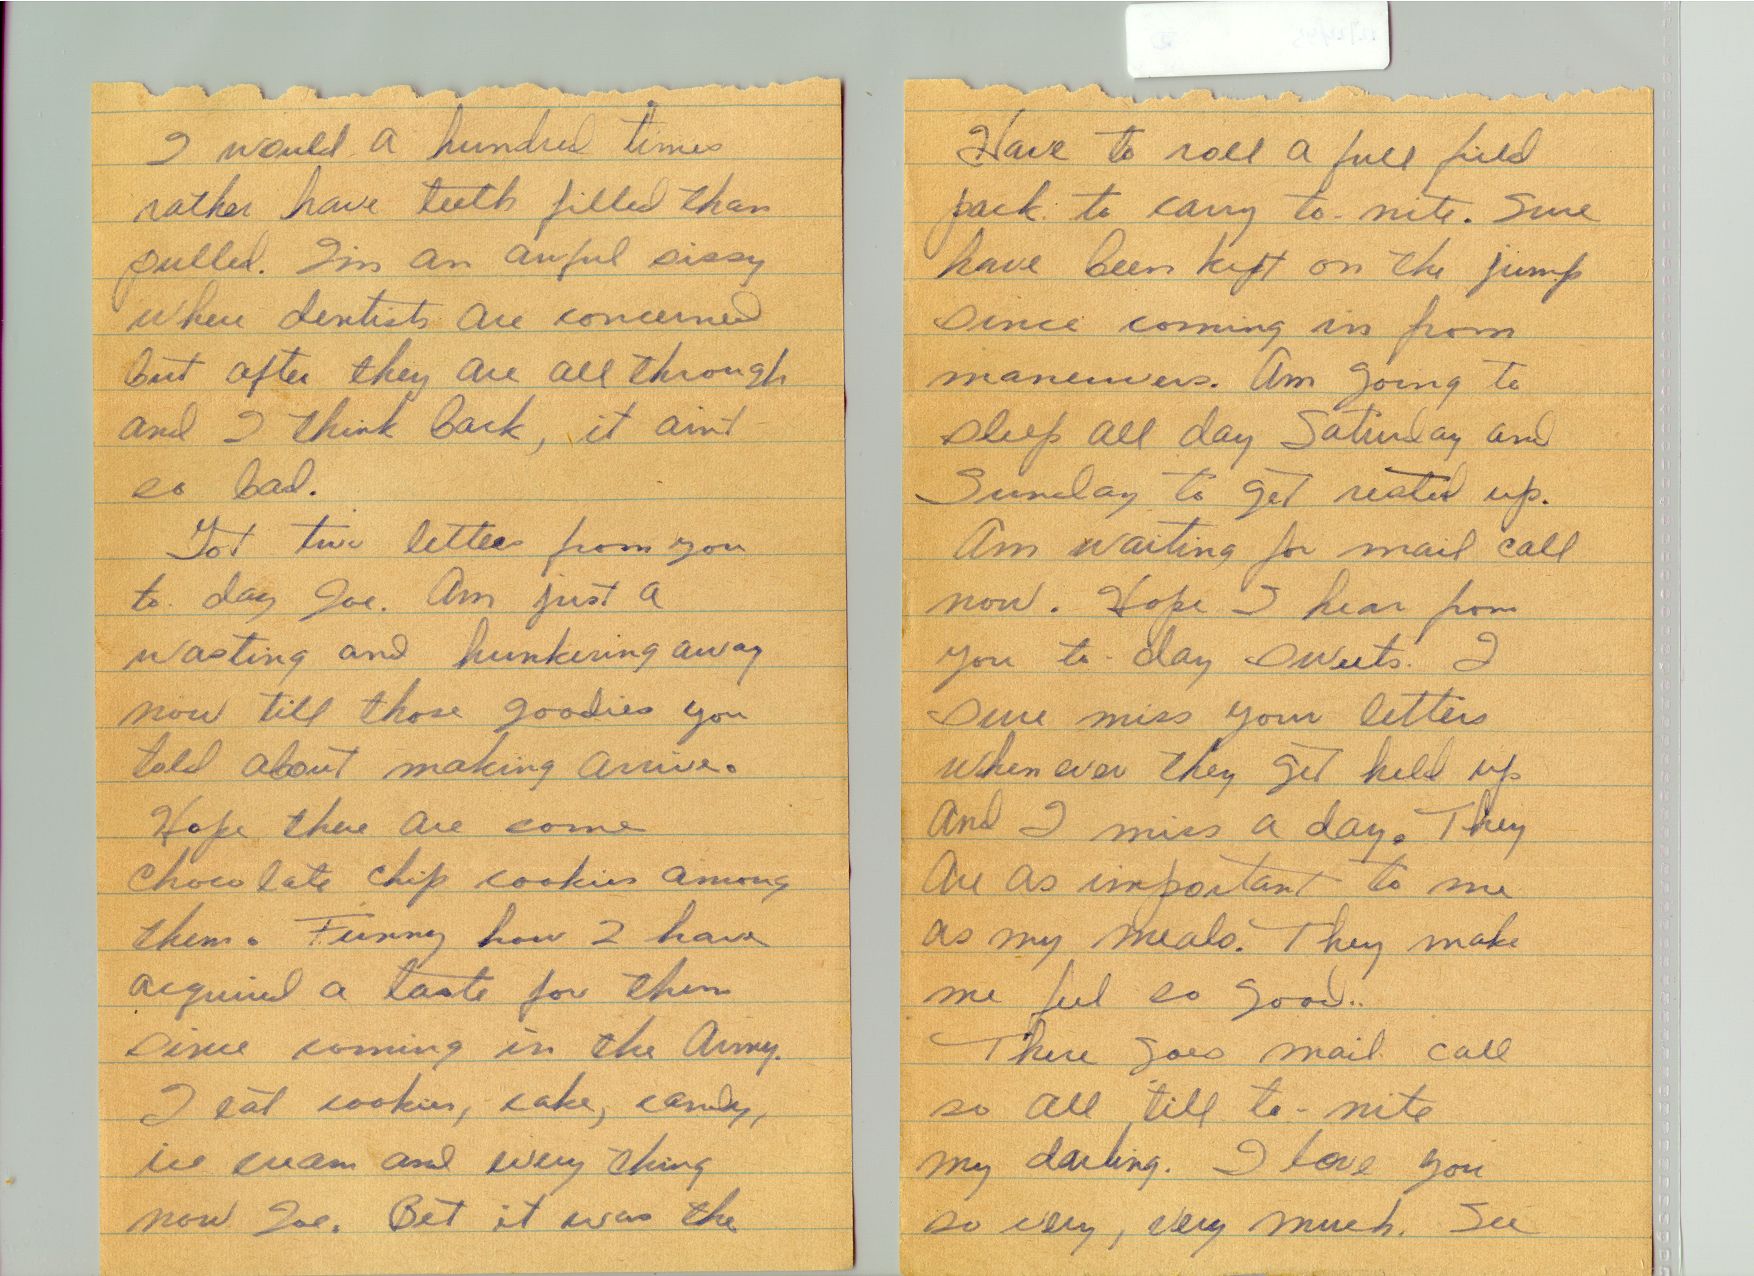 I would a hundred times
rather have teeth filled than
pulled. I'm an awful sissy
where dentists are concerned
but after they are all through
and I think back, it aint
so bad.
Got two letters from you
to-day Joe. Am just a
wasting and hunkering away
now till those goodies you
told about making arrive.
Hope there are some
chocolate chip cookies among
them. Funny how I have
acquired a taste for them
since coming in the Army.
I eat cookies, cake, candy,
ice cream and every thing
now Joe. Bet it was the
Have to roll a full field
pack to carry to-nite. Sure
have been kept on the jump
since coming in from
maneuvers. Am going to
sleep all day Saturday and
Sunday to get rested up.
Am waiting for mail call
now. Hope I hear from
you to-day sweets. I
sure miss your letters
when ever they get held up
and I miss a day. They
are as important to me
as my meals. They make
me feel so good..
There goes mail call
so all till to-nite
my darling. I love you
so very, very much. See